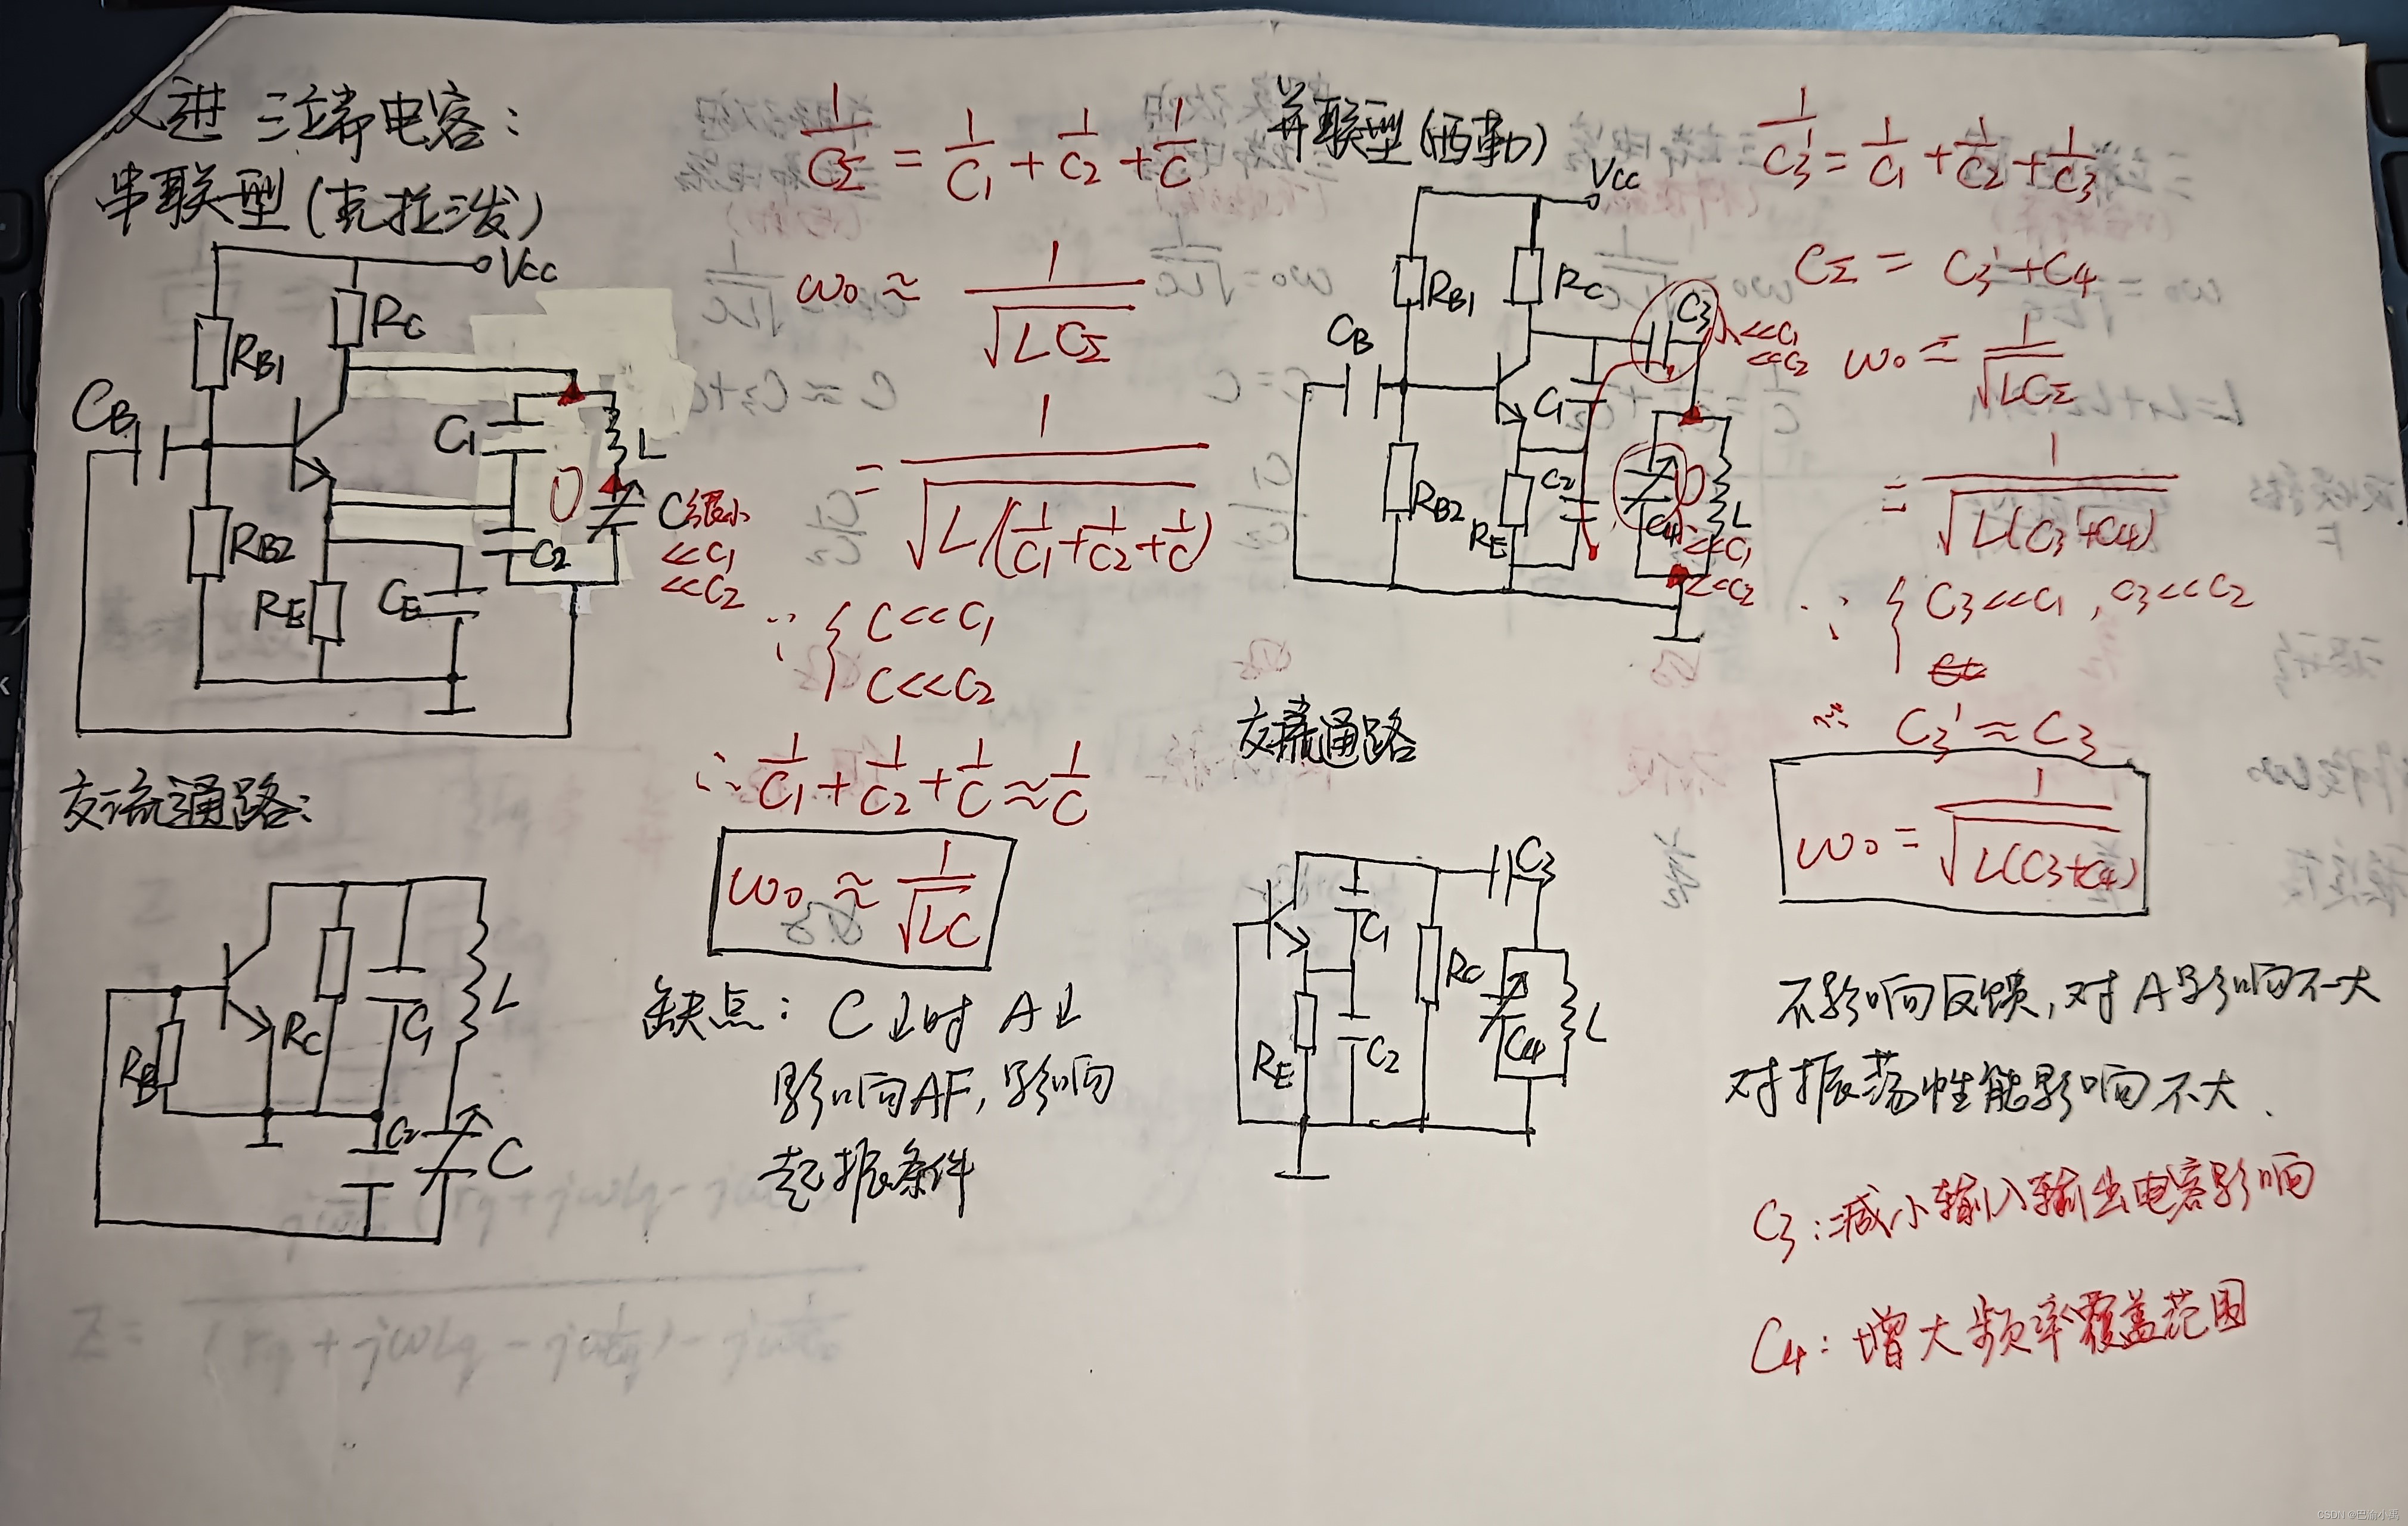 改进 三端电容：
串联型（克拉泼）
VCC
RC
RB1
CB
C1
L
C很小
<<C1
<<C2
RB2
C2
RE
CE
1/CΣ = 1/C1 + 1/C2 + 1/C
ω0 ≈ 1/√(LCΣ)
= 1/√(L/(1/C1+1/C2+1/C))
∵ { C<<C1
C<<C2
∴ 1/C1 + 1/C2 + 1/C ≈ 1/C
ω0 ≈ 1/√(LC)
缺点：C↓时 A↓
影响AF，影响
起振条件
交流通路：
RB
RC
C1
L
C2
C
并联型（西勒）
VCC
RB1
RC
C3
<<C1
<<C2
CB
C1
RB2
RE
C2
C4
L
<<C1
<<C2
1/C3' = 1/C1 + 1/C2 + 1/C3
CΣ = C3'+C4
ω0 = 1/√(LCΣ)
= 1/√(L(C3'+C4))
∵ { C3<<C1，C3<<C2
∴ C3' ≈ C3
ω0 = 1/√(L(C3+C4))
交流通路
C3
C1
RC
RE
C2
C4
L
不影响反馈，对A影响不大
对振荡性能影响不大.
C3：减小输入输出电容影响
C4：增大频率覆盖范围
CSDN @巴渝小哲